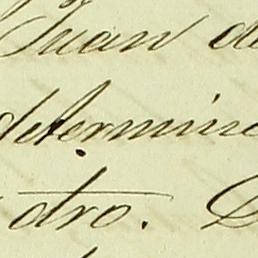 Juan de
determine
otro.